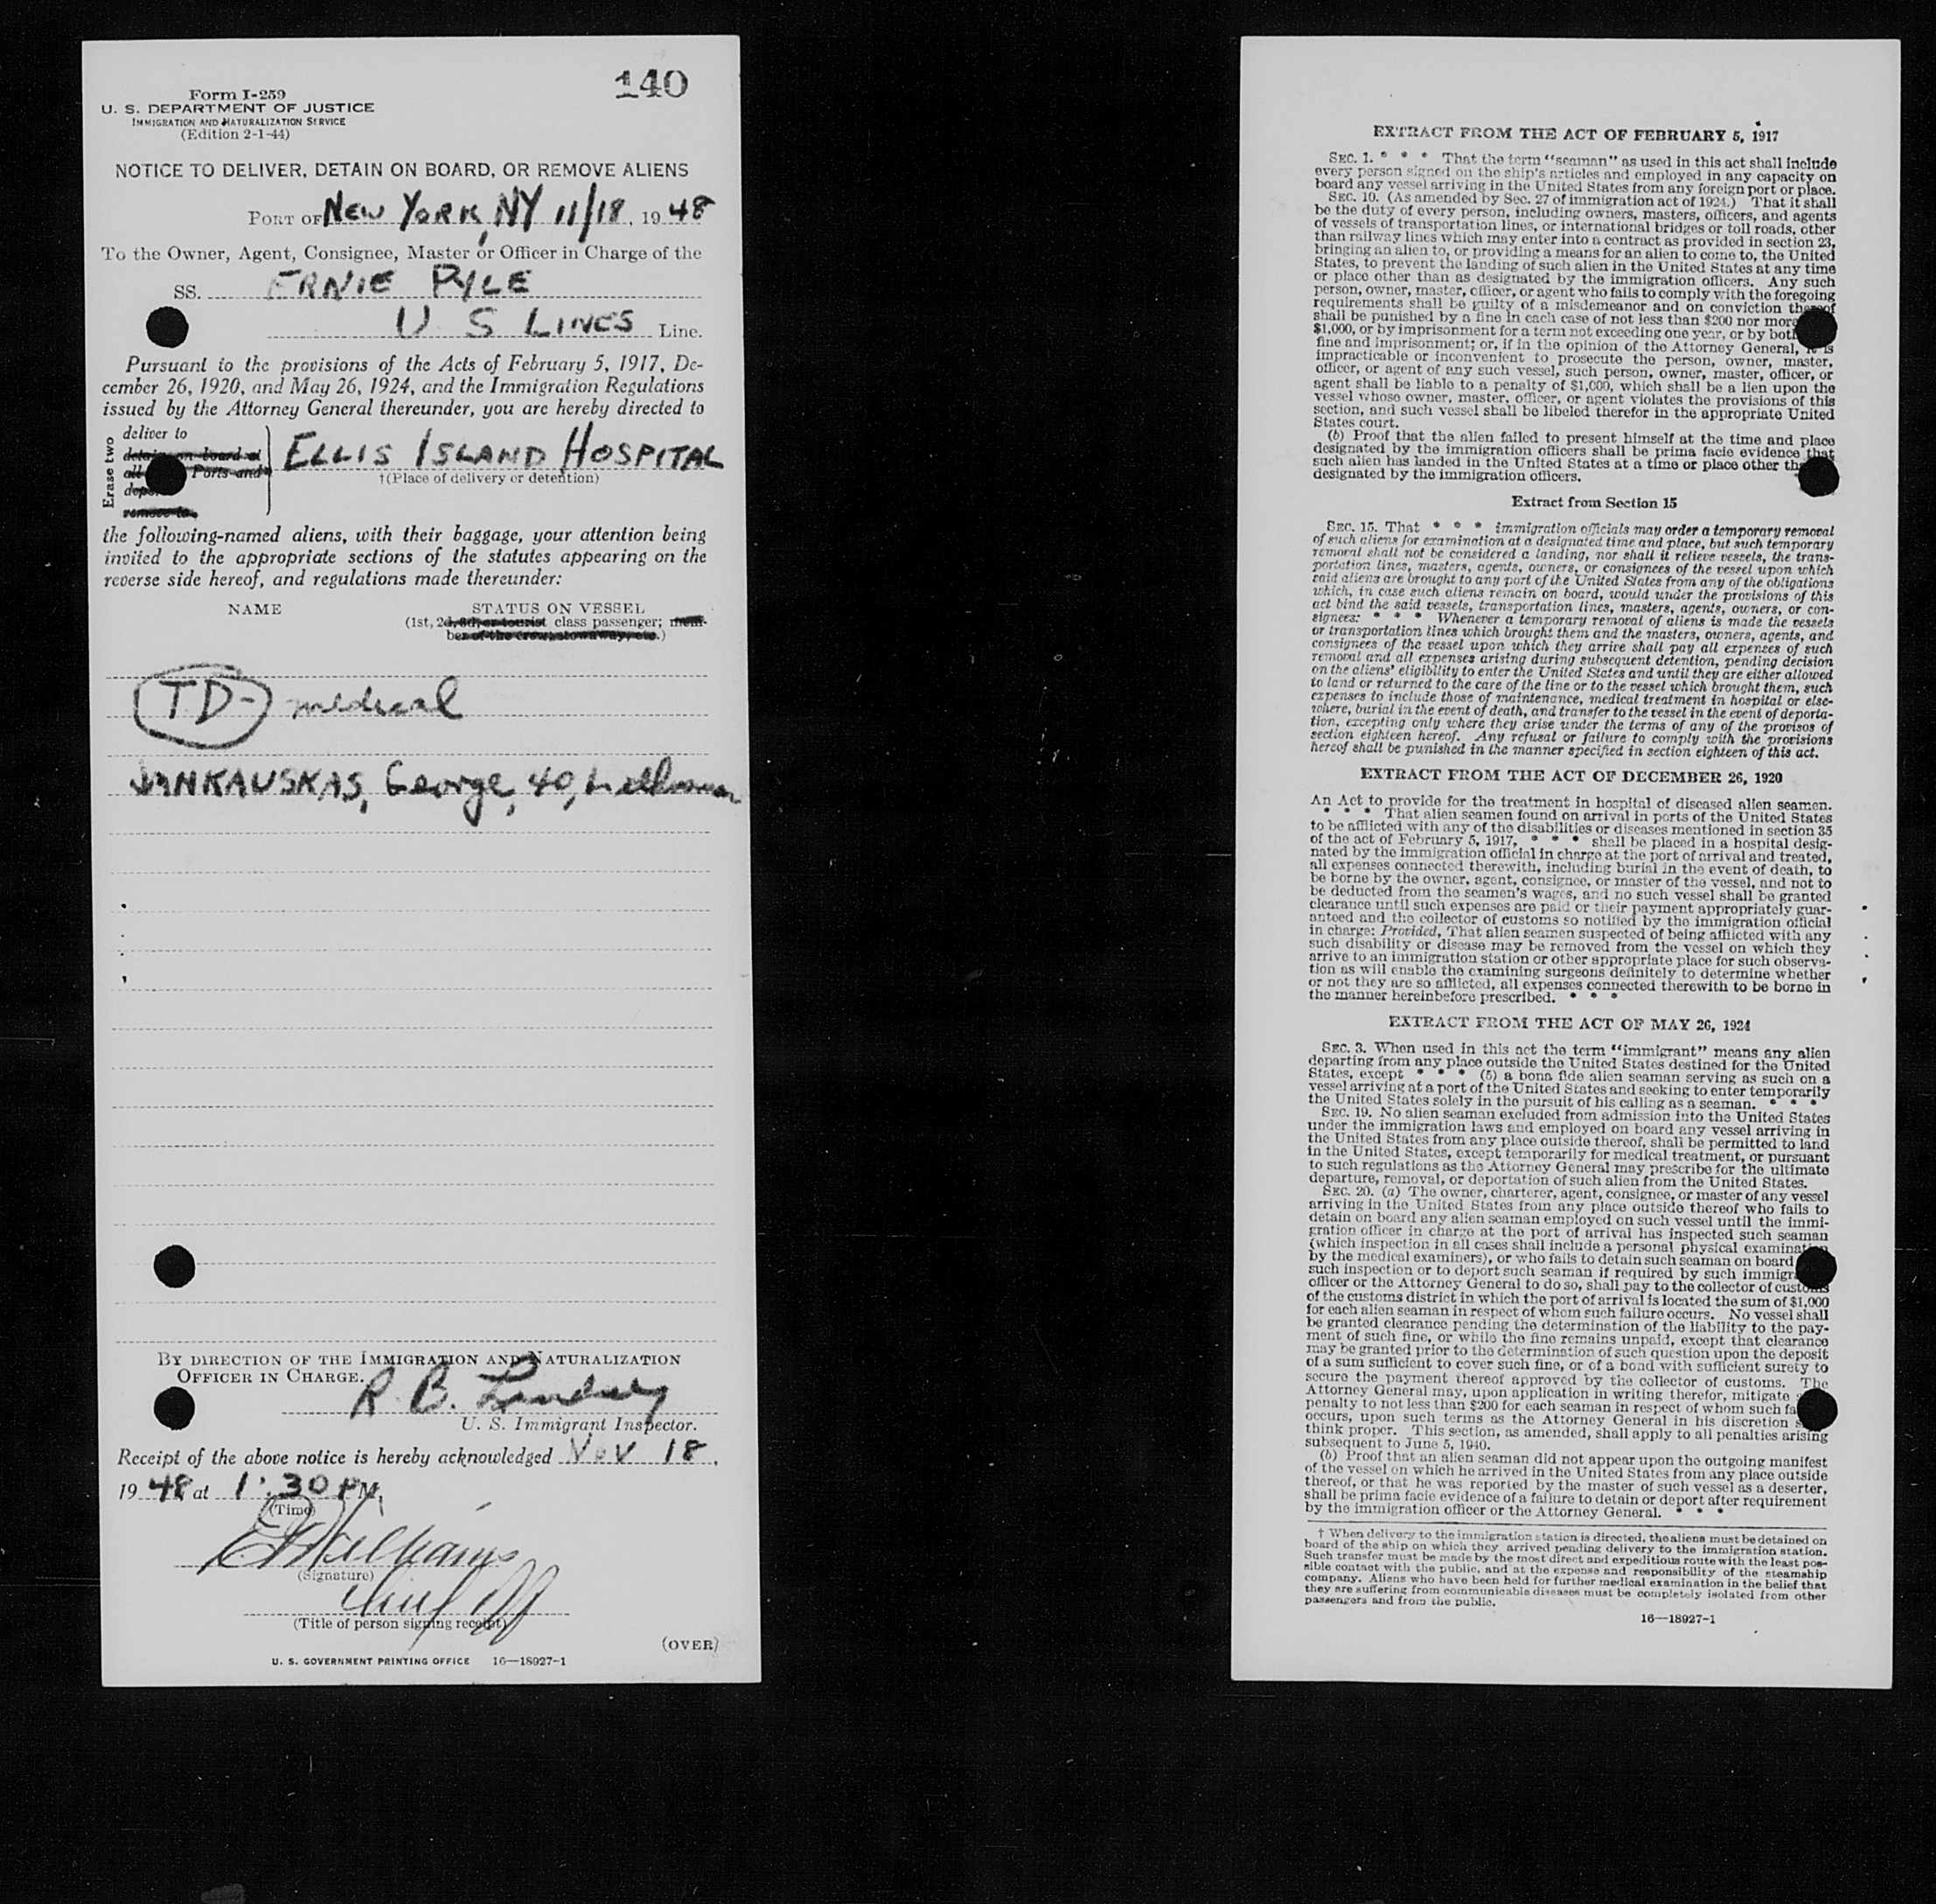 140
Form I-259
U. S. DEPARTMENT OF JUSTICE
IMMIGRATION AND NATURALIZATION SERVICE
(Edition 2-1-44)
NOTICE TO DELIVER, DETAIN ON BOARD, OR REMOVE ALIENS
PORT OF NEW YORK, NY 11/18, 1948
To the Owner, Agent, Consignee, Master or Officer in Charge of the
SS. ERNIE PYLE
U S LINES Line.
Pursuant to the provisions of the Acts of February 5, 1917, De-
cember 26, 1920, and May 26, 1924, and the Immigration Regulations
issued by the Attorney General thereunder, you are hereby directed to
Erase two
deliver to
detain on board at
all Ports and
remove to
ELLIS ISLAND HOSPITAL
†(Place of delivery or detention)
the following-named aliens, with their baggage, your attention being
invited to the appropriate sections of the statutes appearing on the
reverse side hereof, and regulations made thereunder:
NAME STATUS ON VESSEL
(1st, 2d, 3d, or tourist class passenger; mem-
ber of the crew, stowaway, etc.)
TD- medical
JANKAUSKAS, George, 40,
BY DIRECTION OF THE IMMIGRATION AND NATURALIZATION
OFFICER IN CHARGE.
R. B. Lindsey
U. S. Immigrant Inspector.
Receipt of the above notice is hereby acknowledged Nov 18,
1948 at 1:30 PM,
(Time)
Williams
(Signature)
Chief Off
(Title of person signing receipt)
(OVER)
U. S. GOVERNMENT PRINTING OFFICE 16—18927-1
EXTRACT FROM THE ACT OF FEBRUARY 5, 1917
SEC. 1. * * * That the term "seaman" as used in this act shall include
every person signed on the ship's articles and employed in any capacity on
board any vessel arriving in the United States from any foreign port or place.
SEC. 10. (As amended by Sec. 27 of immigration act of 1924.) That it shall
be the duty of every person, including owners, masters, officers, and agents
of vessels of transportation lines, or international bridges or toll roads, other
than railway lines which may enter into a contract as provided in section 23,
bringing an alien to, or providing a means for an alien to come to, the United
States, to prevent the landing of such alien in the United States at any time
or place other than as designated by the immigration officers. Any such
person, owner, master, officer, or agent who fails to comply with the foregoing
requirements shall be guilty of a misdemeanor and on conviction thereof
shall be punished by a fine in each case of not less than $200 nor more
$1,000, or by imprisonment for a term not exceeding one year, or by both
fine and imprisonment; or, if in the opinion of the Attorney General, it is
impracticable or inconvenient to prosecute the person, owner, master,
officer, or agent of any such vessel, such person, owner, master, officer, or
agent shall be liable to a penalty of $1,000, which shall be a lien upon the
vessel whose owner, master, officer, or agent violates the provisions of this
section, and such vessel shall be libeled therefor in the appropriate United
States court.
(b) Proof that the alien failed to present himself at the time and place
designated by the immigration officers shall be prima facie evidence that
such alien has landed in the United States at a time or place other
designated by the immigration officers.
Extract from Section 15
SEC. 15. That * * * immigration officials may order a temporary removal
of such aliens for examination at a designated time and place, but such temporary
removal shall not be considered a landing, nor shall it relieve vessels, the trans-
portation lines, masters, agents, owners, or consignees of the vessel upon which
said aliens are brought to any port of the United States from any of the obligations
which, in case such aliens remain on board, would under the provisions of this
act bind the said vessels, transportation lines, masters, agents, owners, or con-
signees: * * * Whenever a temporary removal of aliens is made the vessels
or transportation lines which brought them and the masters, owners, agents, and
consignees of the vessel upon which they arrive shall pay all expenses of such
removal and all expenses arising during subsequent detention, pending decision
on the aliens' eligibility to enter the United States and until they are either allowed
to land or returned to the care of the line or to the vessel which brought them, such
expenses to include those of maintenance, medical treatment in hospital or else-
where, burial in the event of death, and transfer to the vessel in the event of deporta-
tion, excepting only where they arise under the terms of any of the provisos of
section eighteen hereof. Any refusal or failure to comply with the provisions
hereof shall be punished in the manner specified in section eighteen of this act.
EXTRACT FROM THE ACT OF DECEMBER 26, 1920
An Act to provide for the treatment in hospital of diseased alien seamen.
* * * That alien seamen found on arrival in ports of the United States
to be afflicted with any of the disabilities or diseases mentioned in section 35
of the act of February 5, 1917, * * * shall be placed in a hospital desig-
nated by the immigration official in charge at the port of arrival and treated,
all expenses connected therewith, including burial in the event of death, to
be borne by the owner, agent, consignee, or master of the vessel, and not to
be deducted from the seamen's wages, and no such vessel shall be granted
clearance until such expenses are paid or their payment appropriately guar-
anteed and the collector of customs so notified by the immigration official
in charge: Provided, That alien seamen suspected of being afflicted with any
such disability or disease may be removed from the vessel on which they
arrive to an immigration station or other appropriate place for such observa-
tion as will enable the examining surgeons definitely to determine whether
or not they are so afflicted, all expenses connected therewith to be borne in
the manner hereinbefore prescribed. * * *
EXTRACT FROM THE ACT OF MAY 26, 1924
SEC. 3. When used in this act the term "immigrant" means any alien
departing from any place outside the United States destined for the United
States, except * * * (5) a bona fide alien seaman serving as such on a
vessel arriving at a port of the United States and seeking to enter temporarily
the United States solely in the pursuit of his calling as a seaman. * * *
SEC. 19. No alien seaman excluded from admission into the United States
under the immigration laws and employed on board any vessel arriving in
the United States from any place outside thereof, shall be permitted to land
in the United States, except temporarily for medical treatment, or pursuant
to such regulations as the Attorney General may prescribe for the ultimate
departure, removal, or deportation of such alien from the United States.
SEC. 20. (a) The owner, charterer, agent, consignee, or master of any vessel
arriving in the United States from any place outside thereof who fails to
detain on board any alien seaman employed on such vessel until the immi-
gration officer in charge at the port of arrival has inspected such seaman
(which inspection in all cases shall include a personal physical examination
by the medical examiners), or who fails to detain such seaman on board
such inspection or to deport such seaman if required by such immigration
officer or the Attorney General to do so, shall pay to the collector of customs
of the customs district in which the port of arrival is located the sum of $1,000
for each alien seaman in respect of whom such failure occurs. No vessel shall
be granted clearance pending the determination of the liability to the pay-
ment of such fine, or while the fine remains unpaid, except that clearance
may be granted prior to the determination of such question upon the deposit
of a sum sufficient to cover such fine, or of a bond with sufficient surety to
secure the payment thereof approved by the collector of customs. The
Attorney General may, upon application in writing therefor, mitigate
penalty to not less than $200 for each seaman in respect of whom such
occurs, upon such terms as the Attorney General in his discretion
think proper. This section, as amended, shall apply to all penalties arising
subsequent to June 5, 1940.
(b) Proof that an alien seaman did not appear upon the outgoing manifest
of the vessel on which he arrived in the United States from any place outside
thereof, or that he was reported by the master of such vessel as a deserter,
shall be prima facie evidence of a failure to detain or deport after requirement
by the immigration officer or the Attorney General. * * *
† When delivery to the immigration station is directed, the aliens must be detained on
board of the ship on which they arrived pending delivery to the immigration station.
Such transfer must be made by the most direct and expeditious route with the least pos-
sible contact with the public, and at the expense and responsibility of the steamship
company. Aliens who have been held for further medical examination in the belief that
they are suffering from communicable diseases must be completely isolated from other
passengers and from the public.
16—18927-1